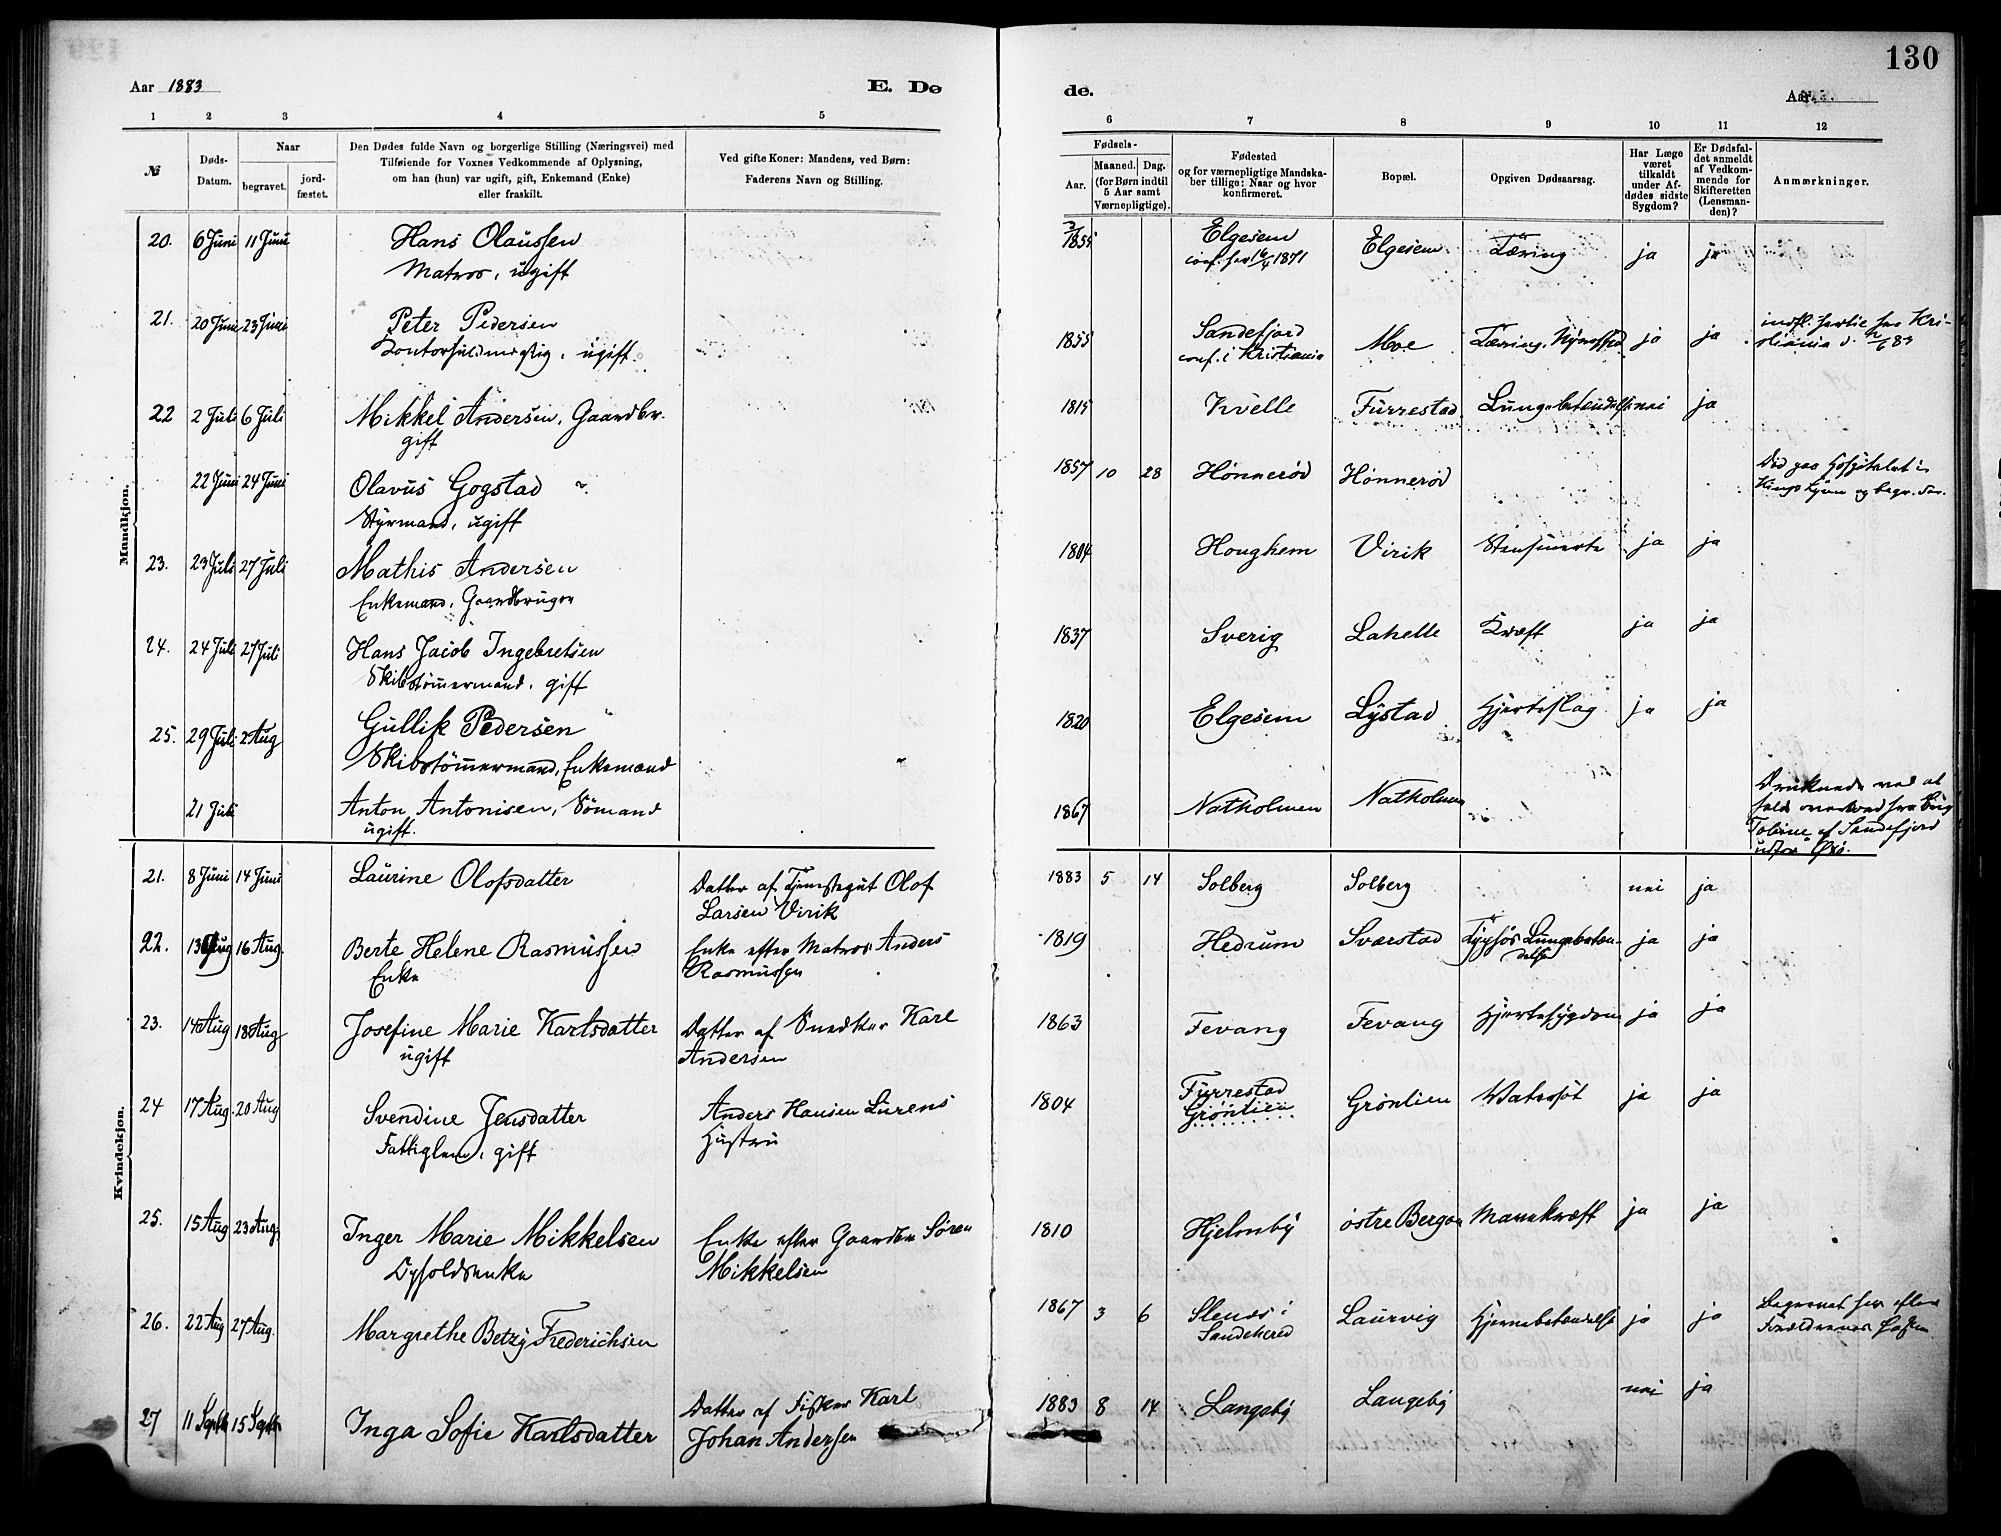 130
Aar 1883
E. Dø
de.
Aar
1 2 3 4 5
6 7 8 9 10 11 12
№
Døds-
Datum.
Naar
begravet.
jord-
fæstet.
Den Dødes fulde Navn og borgerlige Stilling (Næringsvei) med
Tilføiende for Voxnes Vedkommende af Oplysning,
om han (hun) var ugift, gift, Enkemand (Enke)
eller fraskilt.
Ved gifte Koner: Mandens, ved Børn:
Faderens Navn og Stilling.
Fødsels-
Aar.
Maaned. Dag.
(for Børn indtil
5 Aar samt
Værnepligtige).
Fødested
og for værnepligtige Mandska-
ber tillige: Naar og hvor
konfirmeret.
Bopæl.
Opgiven Dødsaarsag.
Har Læge
været
tilkaldt
under Af-
dødes sidste
Sygdom?
Er Dødsfal-
det anmeldt
af Vedkom-
mende for
Skifteretten
(Lensman-
den)?
Anmærkninger.
Mandkjøn.
20. 6 Juni 11 Juni Hans Olaussen 1855 Elgesem Elgesem Tæring ja ja
Matros, ugift conf. her 16/4 1871
21. 20 Juni 23 Juni Peter Pedersen 1855 Sandefjord Moe Tæring, ja ja
Kontorfuldmægtig, ugift. conf. i Kristiania
22 2 Juli 6 Juli Mikkel Andersen, Gaardbr. 1815 Kvelle Furrestad Lungebetændelse nei ja
gift
22 Juni 24 Juni Olavus Gogstad 1857 10 28 Hønnerød Hønnerød Død paa Hospitalet i
Styrmand, ugift Kings Lynn og begr. der.
23. 23 Juli 27 Juli Mathis Andersen 1804 Houghem Virik Stensmerte ja ja
Enkemand, Gaardbruger
24. 24 Juli 27 Juli Hans Jacob Ingebretsen 1837 Sverig Lahelle Kræft ja ja
Skibstømmermand, gift
25. 29 Juli 2 Aug Gullik Pedersen 1820 Elgesem Lystad Hjerteslag ja ja
Skibstømmermand, Enkemand
21 Juli Anton Antonisen, Sømand 1867 Natholmen Natholmen Druknede ved at
ugift. falde overbord fra Brig
af Sandefjord
udfor
Kvindekjøn.
21. 8 Juni 14 Juni Laurine Olofsdatter Datter af Tjenstegut Olof 1883 5 14 Solberg Solberg nei ja
Larsen Virik
22. 13 Aug 16 Aug. Berte Helene Rasmussen Enke efter Matros Anders 1819 Hedrum Sværstad Tyføs Lungebetæn- ja ja
Enke Rasmussen delse
23. 14 Aug 18 Aug Josefine Marie Karlsdatter Datter af Snedker Karl 1863 Fevang Fevang Hjertesygdom ja ja
ugift Andersen
24 17 Aug. 20 Aug Svendine Jensdatter Anders Hansen Lurens 1804 Fyrrestad Grønlien Vatersot ja ja
Fattiglem, gift Hustru Grønlien
25. 15 Aug 23 Aug. Inger Marie Mikkelsen Enke efter Gaardbr Søren 1810 Hjelmby østre Bergan Mavekræft ja ja
Opholdsenke Mikkelsen
26. 22 Aug 27 Aug. Margrethe Betzy Frederichsen 1867 3 6 i Laurvig Hjernebetændelse ja ja Begravet her efter
Sandeherred Forældrenes
27 11 Septbr 15 Septbr Inga Sofie Karlsdatter Datter af Fisker Karl 1883 8 14 Langeby Langeby nei ja
Johan Andersen